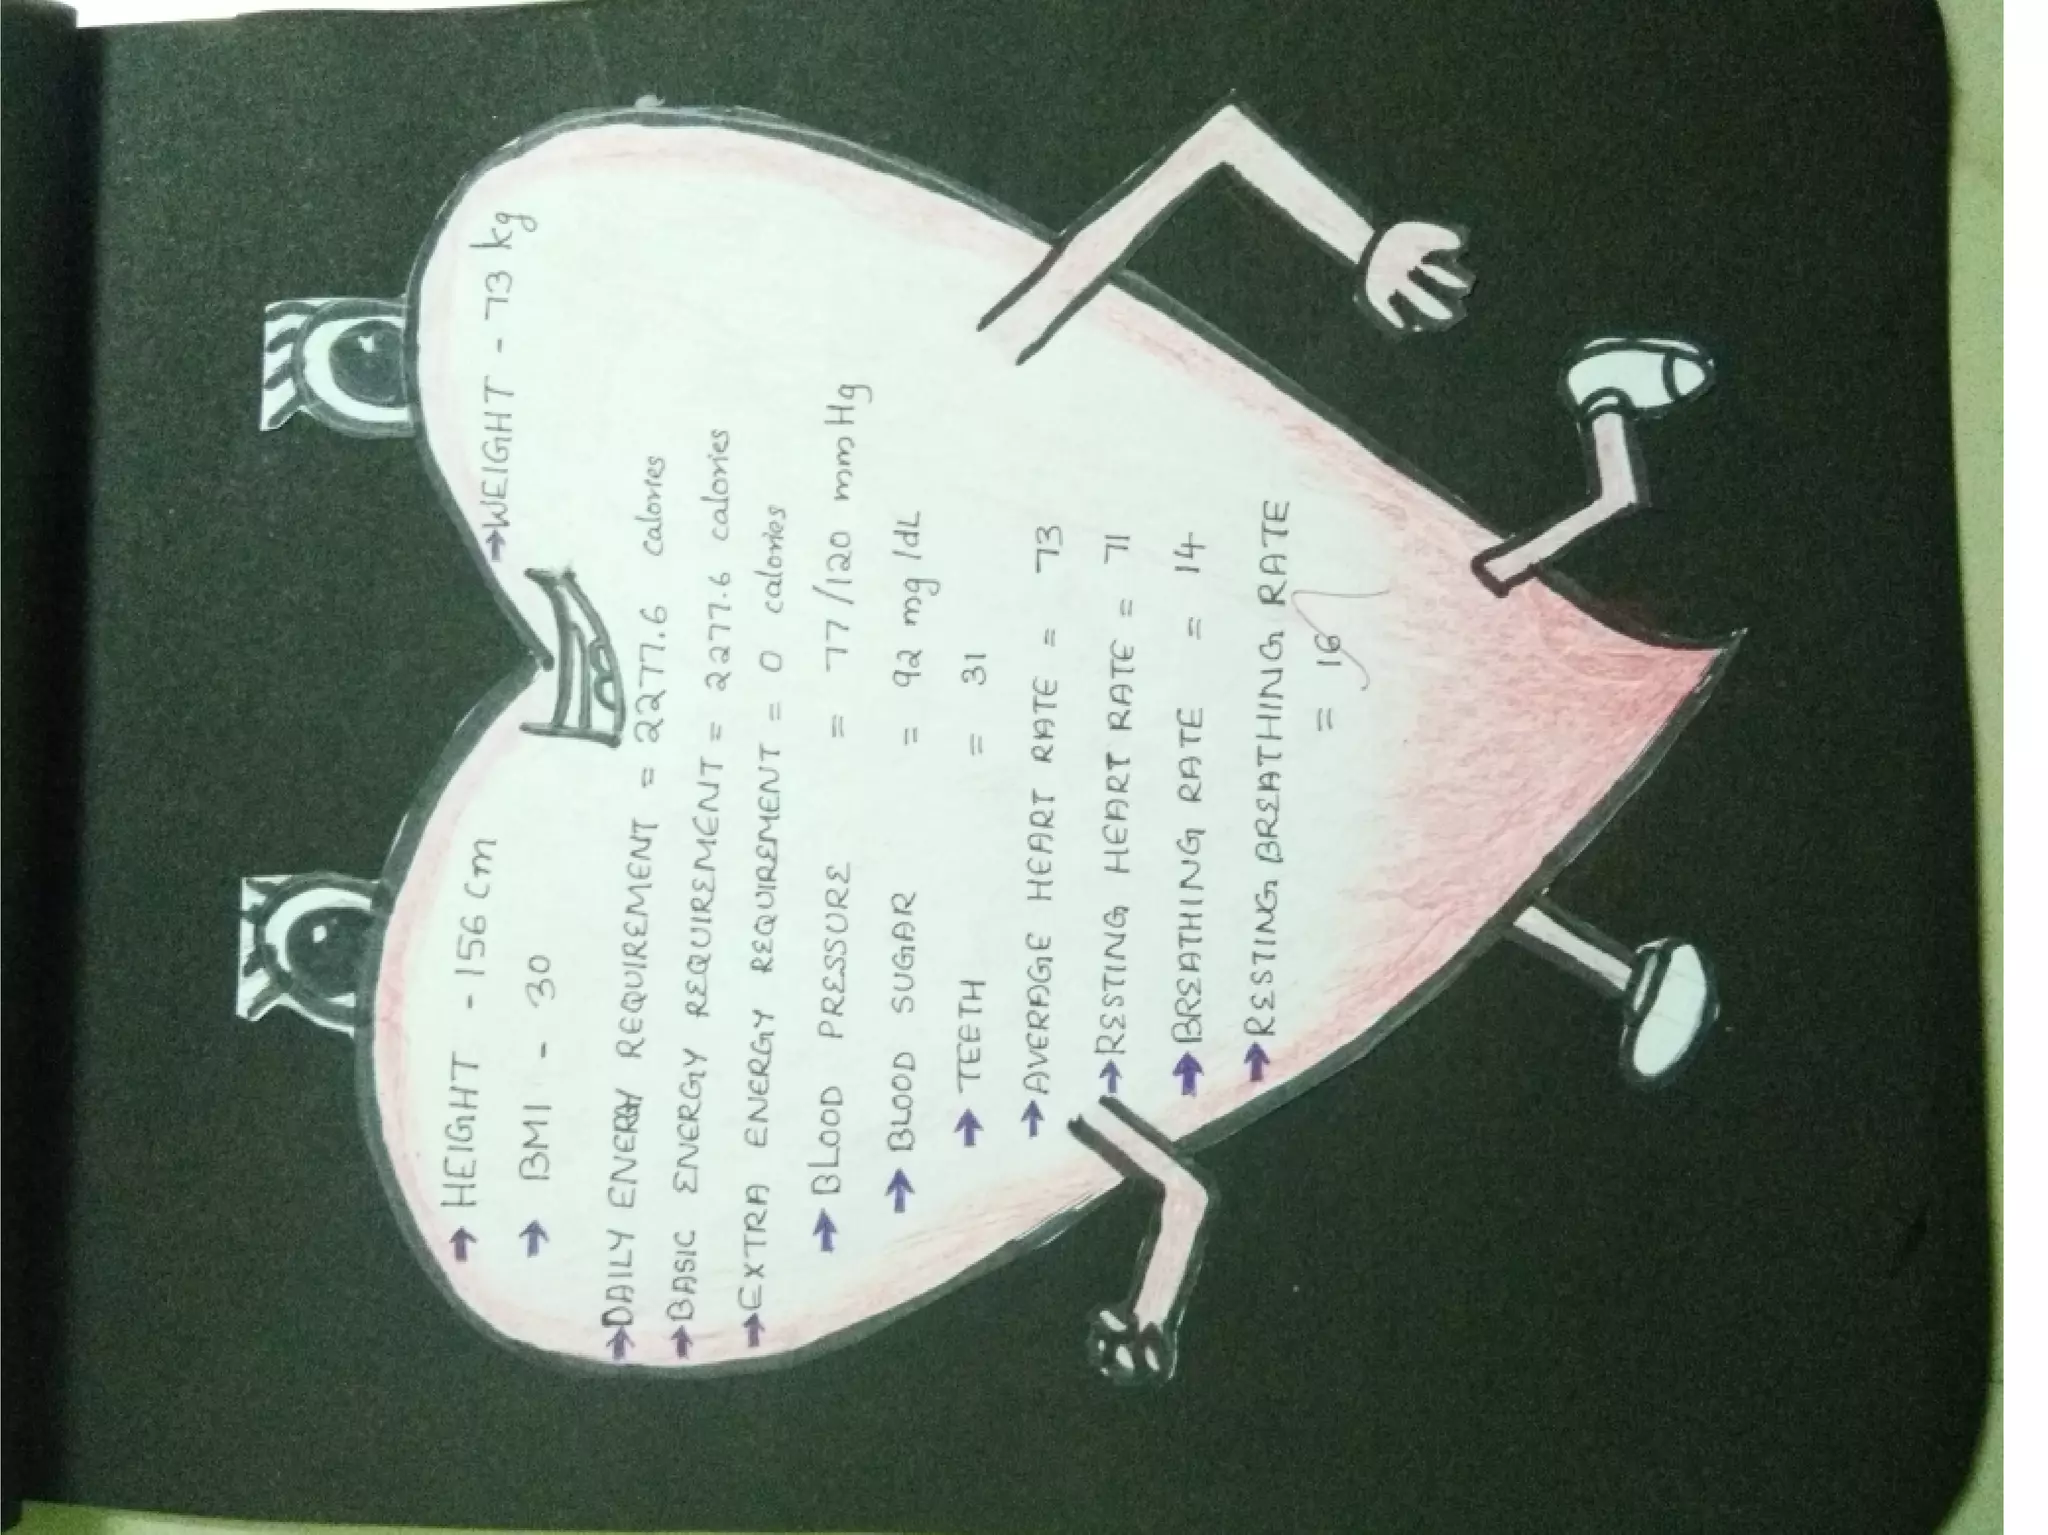 → HEIGHT - 156 cm → WEIGHT - 73 kg
→ BMI - 30
→ DAILY ENERGY REQUIREMENT = 2277.6 calories
→ BASIC ENERGY REQUIREMENT = 2277.6 calories
→ EXTRA ENERGY REQUIREMENT = 0 calories
→ BLOOD PRESSURE = 77/120 mmHg
→ BLOOD SUGAR = 92 mg/dL
→ TEETH = 31
→ AVERAGE HEART RATE = 73
→ RESTING HEART RATE = 71
→ BREATHING RATE = 14
→ RESTING BREATHING RATE
= 16